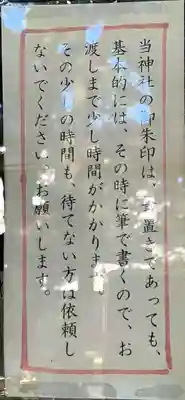 当神社の御朱印は、書置きであっても、
基本的には、その時に筆で書くので、お
渡しまで少し時間がかかります。
その少しの時間も、待てない方は依頼し
ないでください。お願いします。